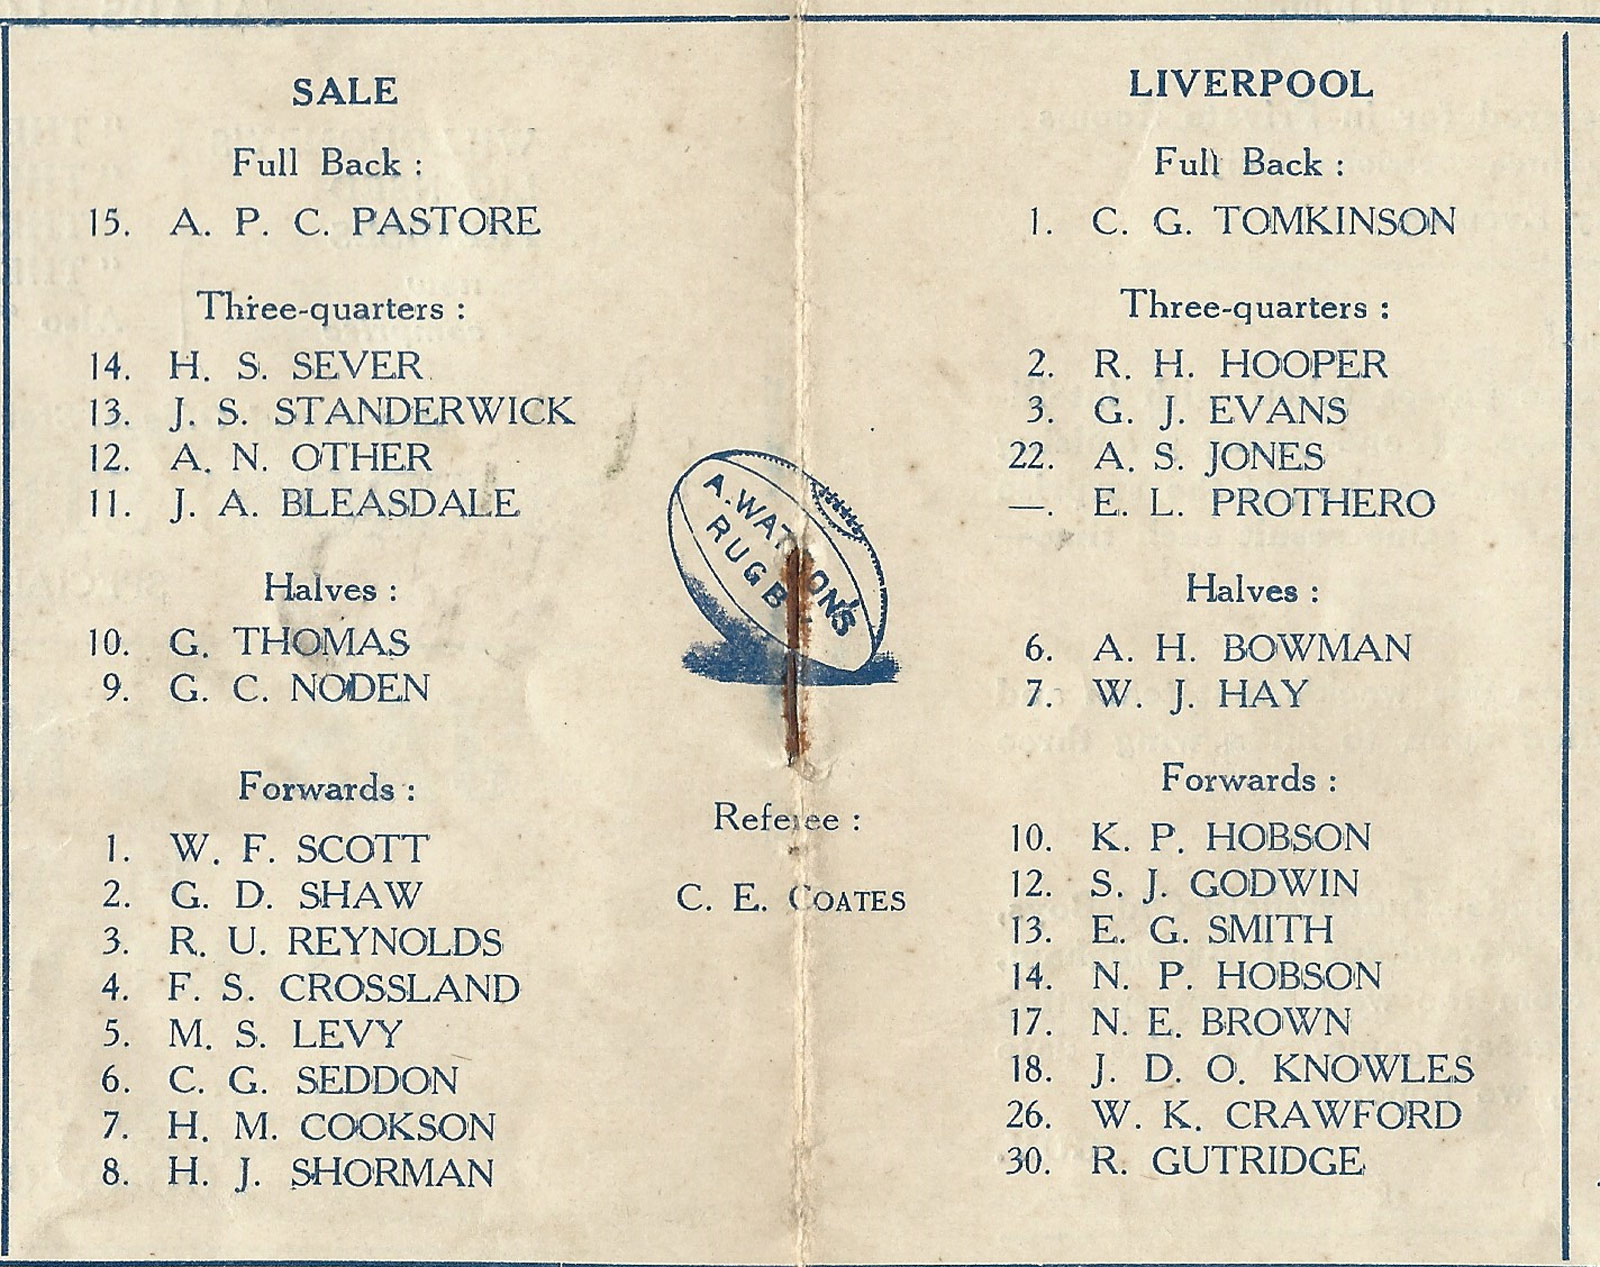 SALE
Full Back :
15. A. P. C. PASTORE
Three-quarters :
14. H. S. SEVER
13. J. S. STANDERWICK
12. A. N. OTHER
11. J. A. BLEASDALE
Halves :
10. G. THOMAS
9. G. C. NODEN
Forwards :
1. W. F. SCOTT
2. G. D. SHAW
3. R. U. REYNOLDS
4. F. S. CROSSLAND
5. M. S. LEVY
6. C. G. SEDDON
7. H. M. COOKSON
8. H. J. SHORMAN
A. WATSON'S
RUGBY
Referee :
C. E. COATES
LIVERPOOL
Full Back :
1. C. G. TOMKINSON
Three-quarters :
2. R. H. HOOPER
3. G. J. EVANS
22. A. S. JONES
—. E. L. PROTHERO
Halves :
6. A. H. BOWMAN
7. W. J. HAY
Forwards :
10. K. P. HOBSON
12. S. J. GODWIN
13. E. G. SMITH
14. N. P. HOBSON
17. N. E. BROWN
18. J. D. O. KNOWLES
26. W. K. CRAWFORD
30. R. GUTRIDGE